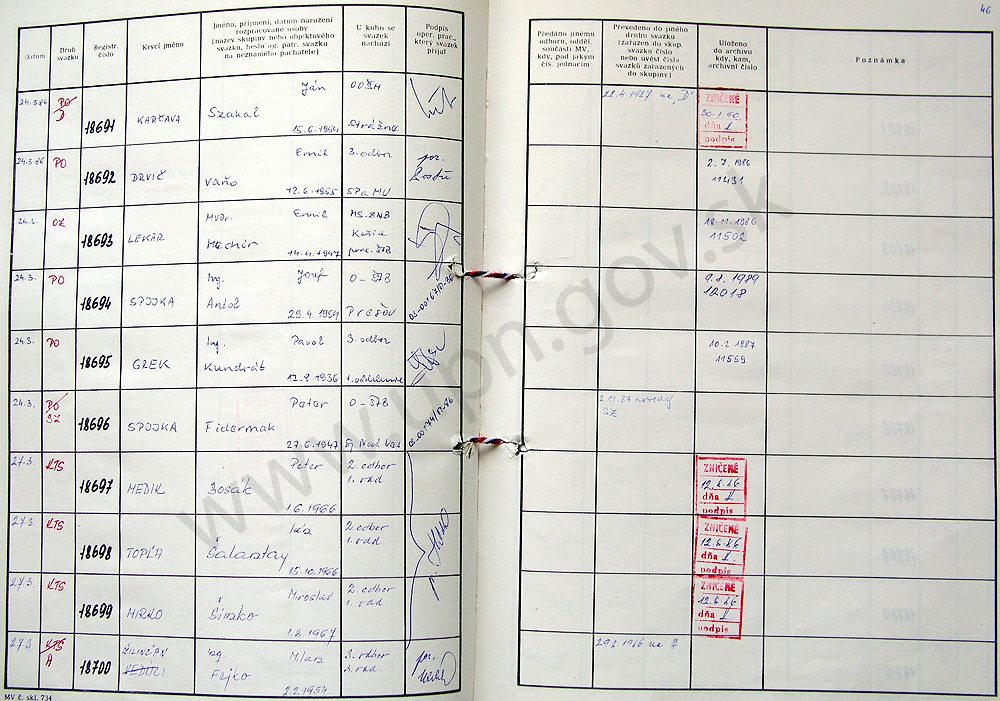 46
Datum
Druh svazku
Registr. číslo
Krycí jméno
Jméno, příjmení, datum narození
rozpracované osoby
(název skupiny nebo objektového
svazku, heslo ag. pátr. svazku
na neznámého pachatele)
U koho se
svazek
nachází
Podpis
oper. prac.,
který svazek
přijal
Předáno jinému
odboru, odděl.
součásti MV,
kdy, pod jakým
čís. jednacím
Převedeno do jiného
druhu svazku
(zařazen do skup.
svazku číslo
nebo uvést čísla
svazků zařazených
do skupiny)
Uloženo
do archivu
kdy, kam,
archivní číslo
Poznámka
24.3.86 PO D 18691 KARČAVA Ján
Szakal
15.6.1954
OOŠH
Strážne
22.4.1987 na „D"
ZNIČENÉ
dňa
podpis
24.3.86 PO 18692 DRVIČ Emil
Vaňo
12.6.1955
3. odbor
SPaMV
por.
2.7.1986
11431
24.3. OZ 18693 LEKÁR MVDr. Emil
14.4.1947
MS.ZNB
Košice
prac. ŠtB
18.11.1986
11502
24.3. PO 18694 SPOJKA Ing. Jozef
Antol
29.4.1954
O-ŠtB
Prešov
9.8.1989
12018
24.3. PO 18695 GREK Ing. Pavol
Kundrát
12.9.1936
3. odbor
1. oddelenie
10.2.1987
11559
24.3. PO SZ 18696 SPOJKA Peter
Fidermak
27.6.1947
O-ŠtB
Sp. Nová Ves
SZ
27.3. KTS 18697 MEDIK Peter
Bosák
1.6.1966
2. odbor
1. odd
ZNIČENÉ
12.8.86
dňa
podpis
27.3. KTS 18698 TOPĽA
Šalantay
15.10.1966
2. odbor
1. odd
ZNIČENÉ
12.8.86
dňa
podpis
27.3. KTS 18699 MIRKO Miroslav
Šimko
1.8.1967
2. odbor
1. odd
ZNIČENÉ
12.8.86
dňa
podpis
27.3. KTS A 18700 ŽILINČAN
Ing. Milan
Fejko
2.2.1954
3. odbor
por.
MV č. skl. 734
www.upn.gov.sk